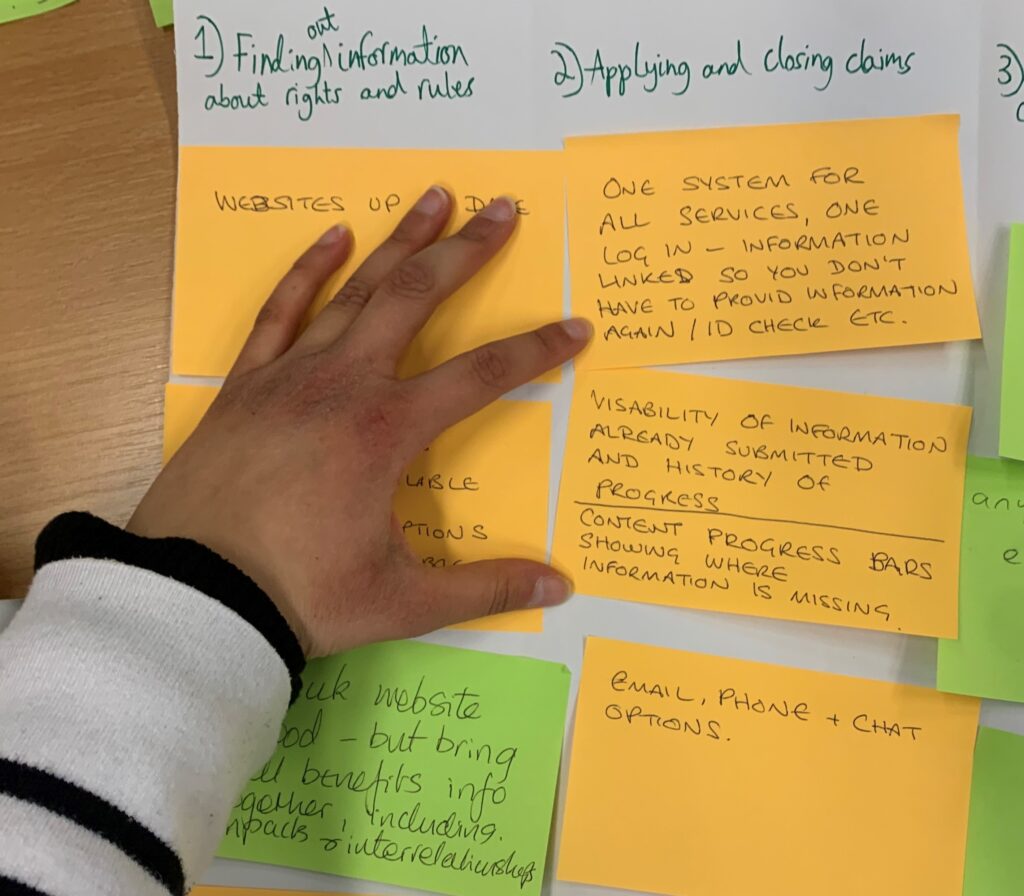 1) Finding out information
about rights and rules
WEBSITES UP
LABLE
PTIONS
uk website
ood - but bring
benefits info
gether, including.
npack & interrelationships
2) Applying and closing claims
ONE SYSTEM FOR
ALL SERVICES, ONE
LOG IN - INFORMATION
LINKED SO YOU DON'T
HAVE TO PROVID INFORMATION
AGAIN / ID CHECK ETC.
VISABILITY OF INFORMATION
ALREADY SUBMITTED
AND HISTORY OF
PROGRESS
CONTENT PROGRESS BARS
SHOWING WHERE
INFORMATION IS MISSING.
EMAIL, PHONE + CHAT
OPTIONS.
3)